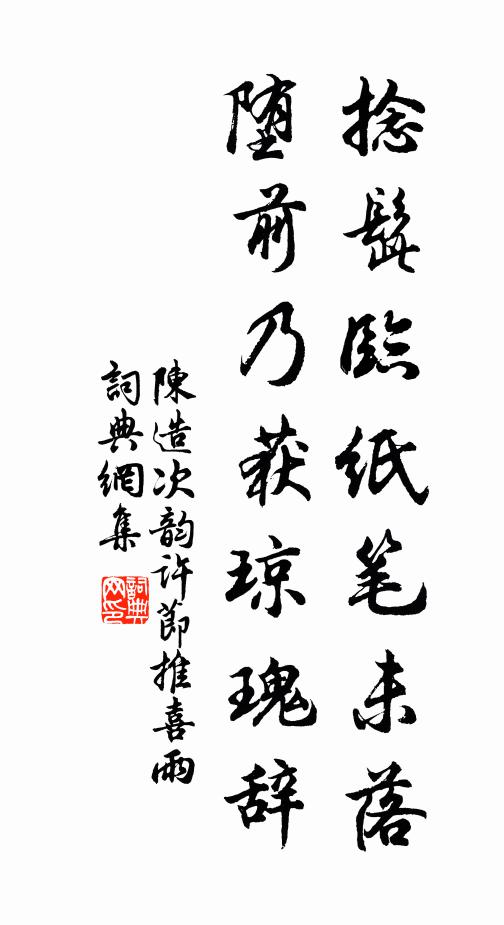 捻髭臨纸笔未落
堕前乃获琼瑰辞
陳造次韵许節推喜雨
詞典網集
詞典网印